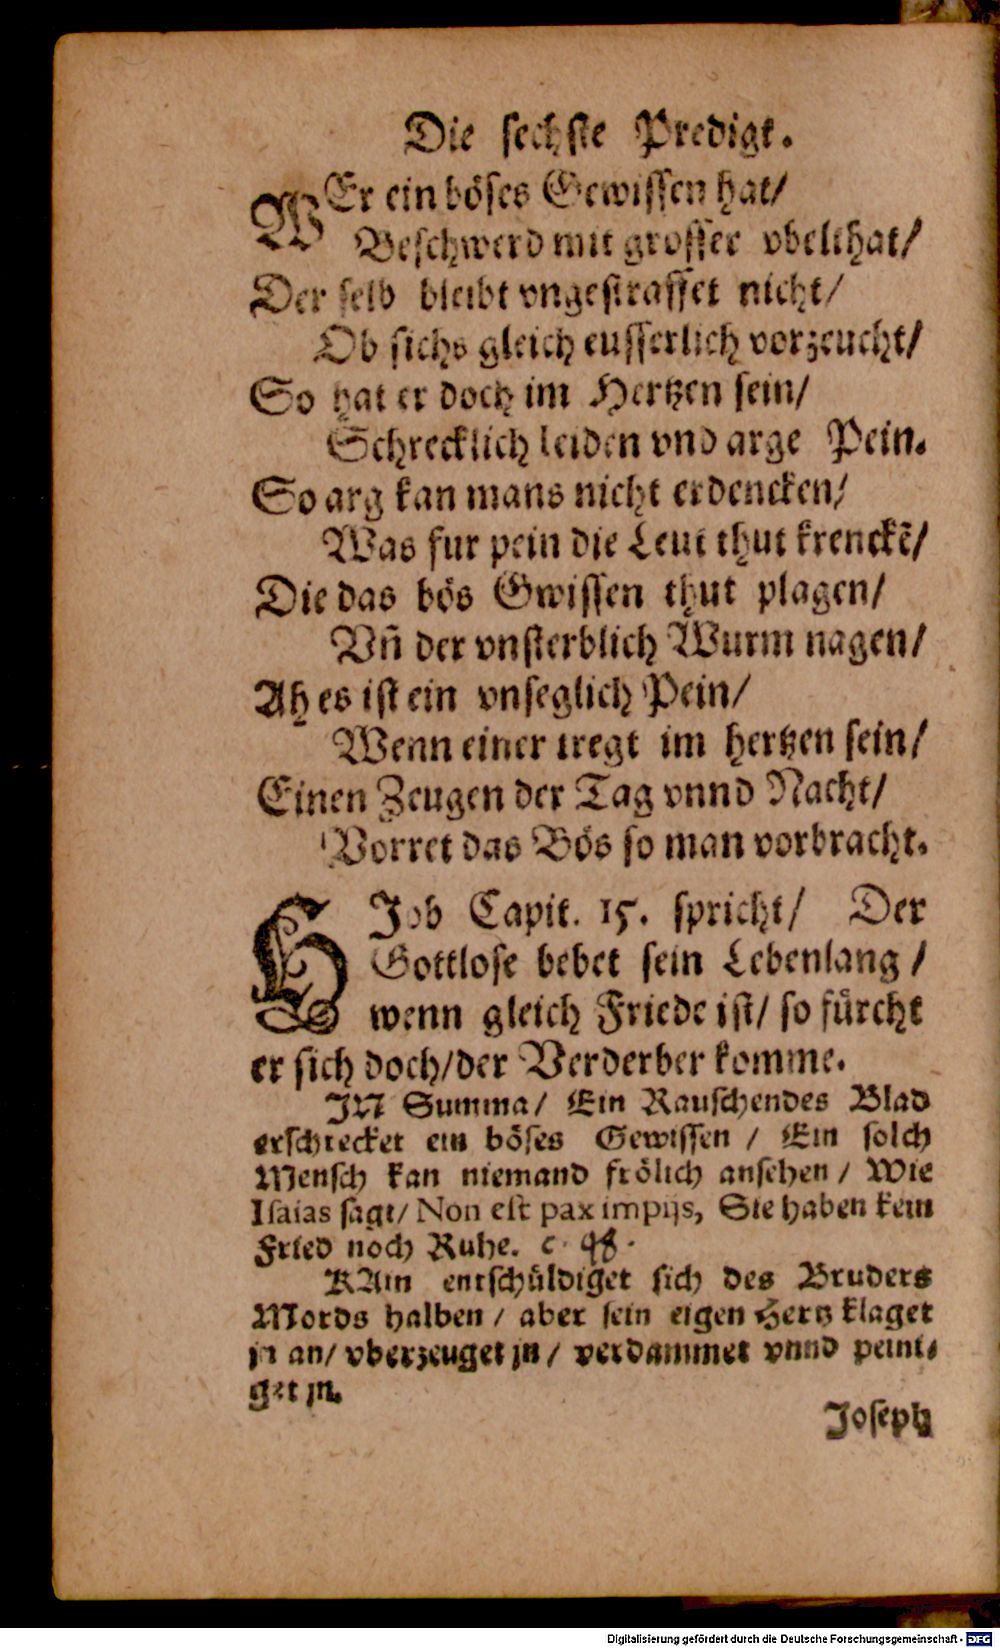 Die sechste Predigt.
WEr ein böses Gewissen hat/
Beschwerd mit grosser vbelthat/
Der selb bleibt vngestraffet nicht/
Ob sichs gleich eusserlich vorzeucht/
So hat er doch im Hertzen sein/
Schrecklich leiden vnd arge Pein.
So arg kan mans nicht erdencken/
Was fur pein die Leut thut krenckē/
Die das bös Gwissen thut plagen/
Vñ der vnsterblich Wurm nagen/
Ah es ist ein vnseglich Pein/
Wenn einer tregt im hertzen sein/
Einen Zeugen der Tag vnnd Nacht/
Vorret das Bös so man vorbracht.
HJob Capit. 15. spricht/ Der
Gottlose bebet sein Lebenlang /
wenn gleich Friede ist/ so fürcht
er sich doch/der Verderber komme.
JN Summa/ Ein Rauschendes Blad
erschrecket ein böses Gewissen / Ein solch
Mensch kan niemand frölich ansehen / Wie
Isaias sagt/ Non est pax impijs, Sie haben kein
Fried noch Ruhe. c. 48.
KAin entschüldiget sich des Bruders
Mords halben / aber sein eigen Hertz klaget
jn an/ vberzeuget jn / verdammet vnnd peini-
get jn.
Joseph
Digitalisierung gefördert durch die Deutsche Forschungsgemeinschaft - DFG